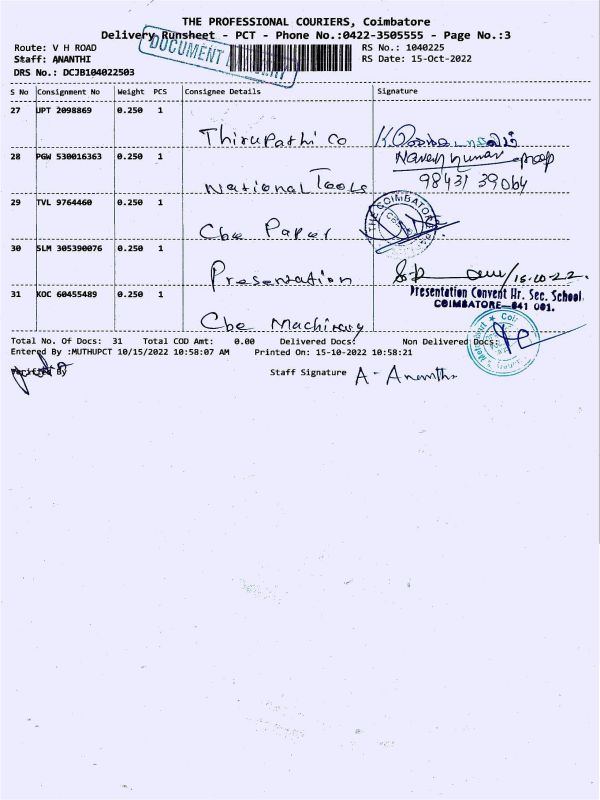 THE PROFESSIONAL COURIERS, Coimbatore
Delivery Runsheet - PCT - Phone No.:0422-3505555 - Page No.:3
Route: V H ROAD RS No.: 1040225
Staff: ANANTHI RS Date: 15-Oct-2022
DRS No.: DCJB104022503
DOCUMENT
S No Consignment No Weight PCS Consignee Details Signature
27 JPT 2098869 0.250 1
Thirupathi Co
28 PGW 530016363 0.250 1 Naveen Kumar
National Tools 98431 39064
29 TVL 9764460 0.250 1 THE COIMBATORE
Cbe Paper
30 SLM 305390076 0.250 1
Presentation 15.10.22
31 KOC 60455489 0.250 1 Presentation Convent Hr. Sec. School
COIMBATORE-641 001.
Cbe Machinery
Total No. Of Docs: 31 Total COD Amt: 0.00 Delivered Docs: Non Delivered Docs:
Entered By :MUTHUPCT 10/15/2022 10:58:07 AM Printed On: 15-10-2022 10:58:21
By Staff Signature A- Ananthi